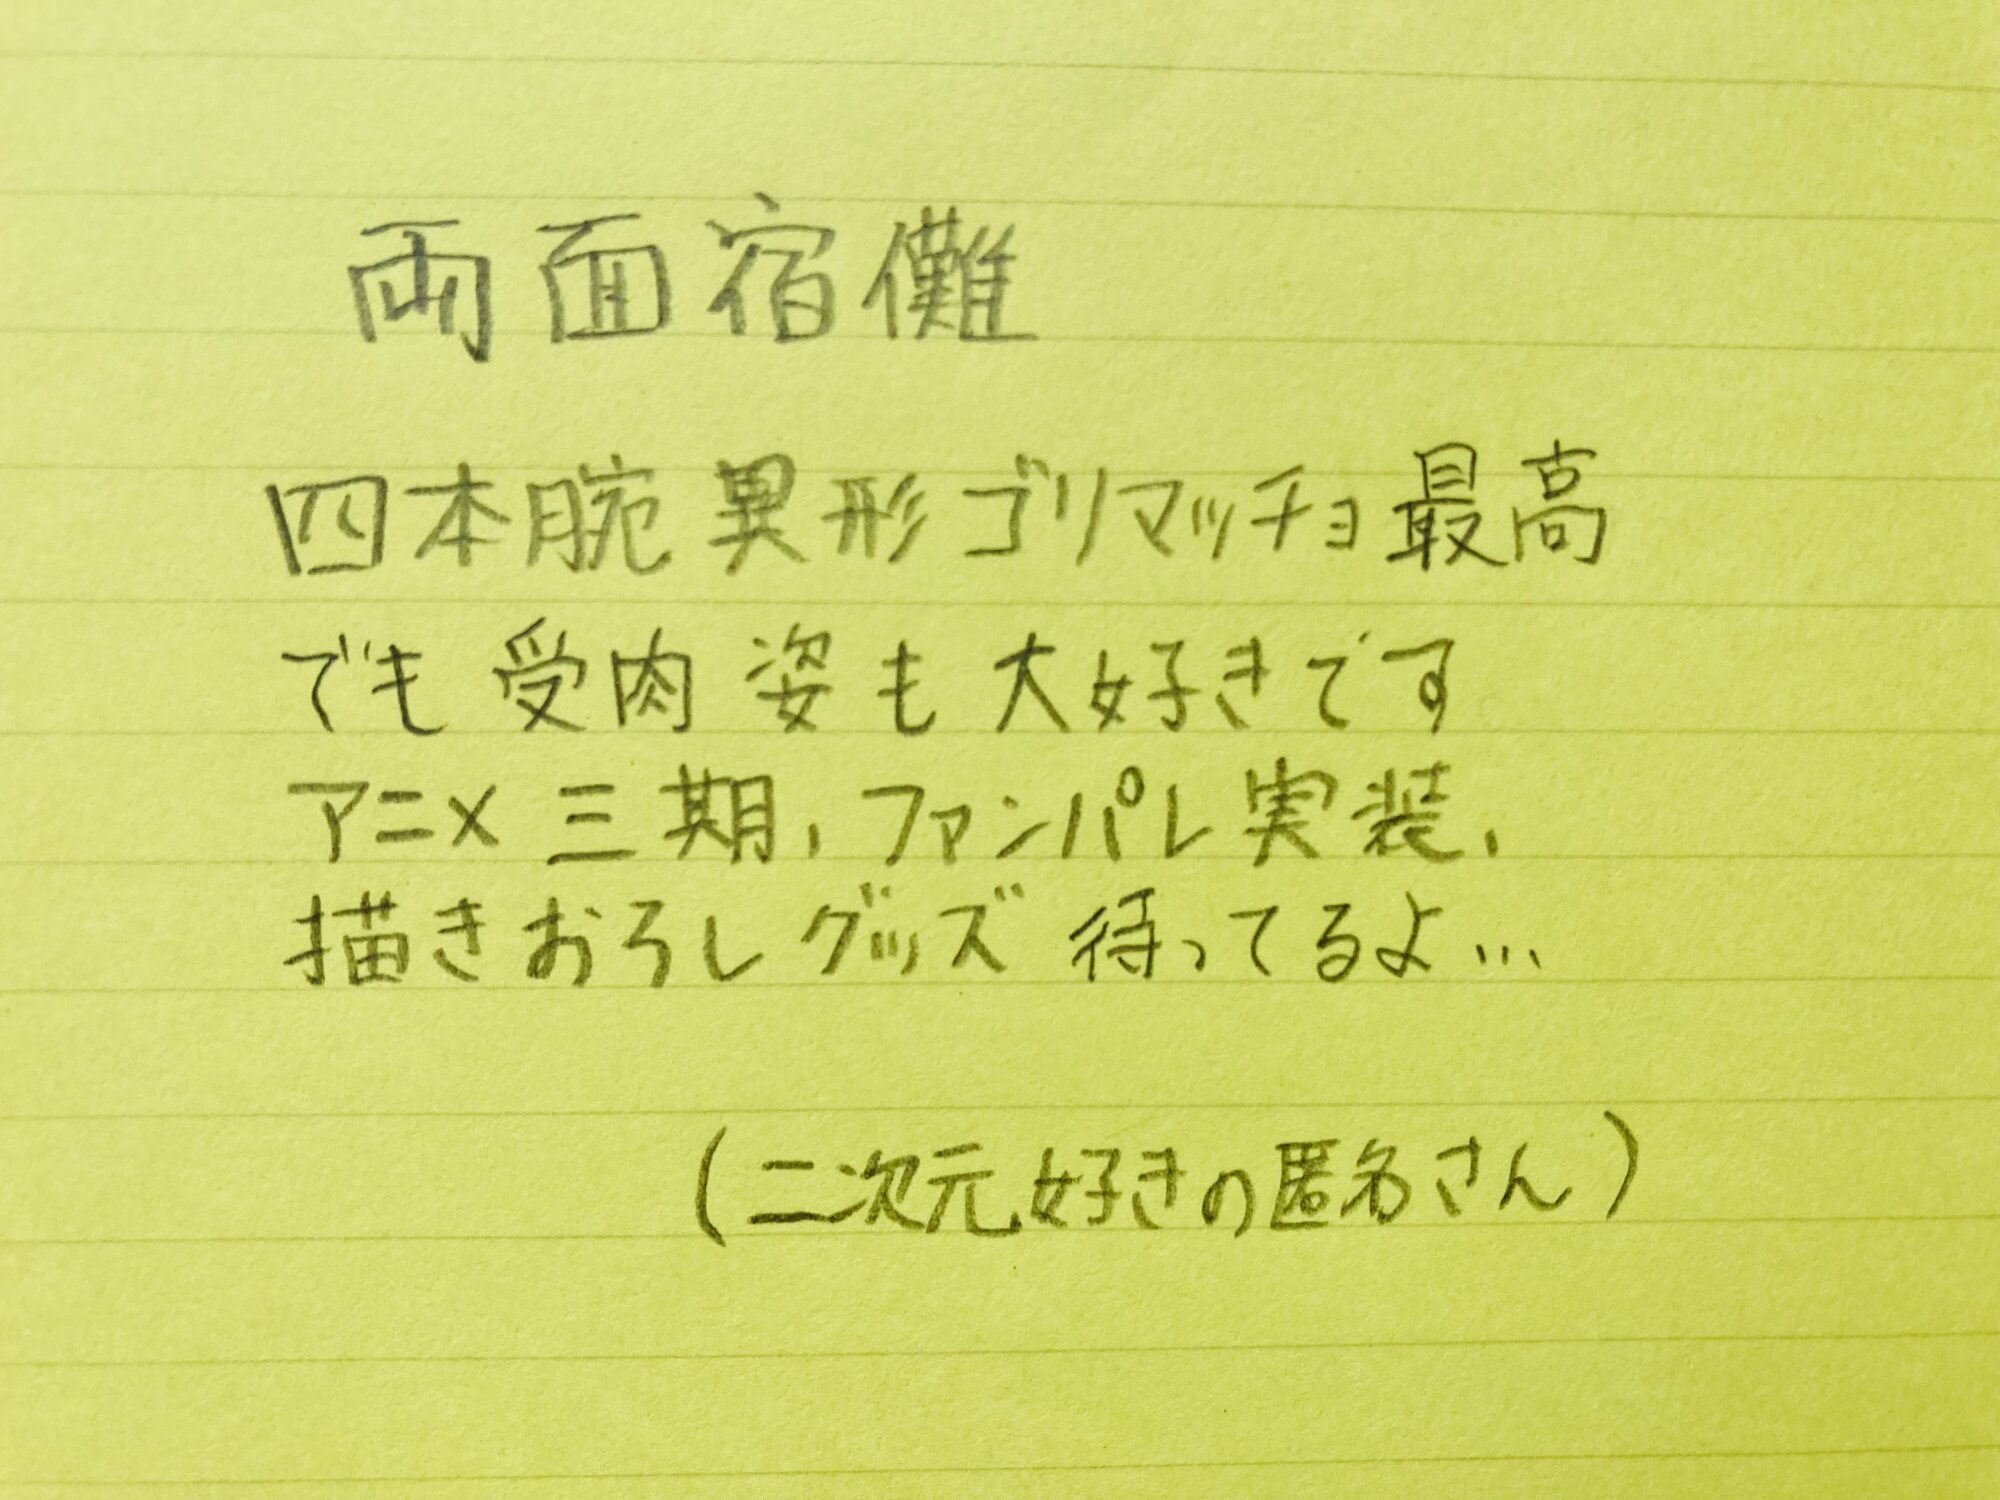 両面宿儺
四本腕異形ゴリマッチョ最高
でも受肉姿も大好きです
アニメ三期、ファンパレ実装、
描きおろしグッズ待ってるよ…
(二次元好きの匿名さん)